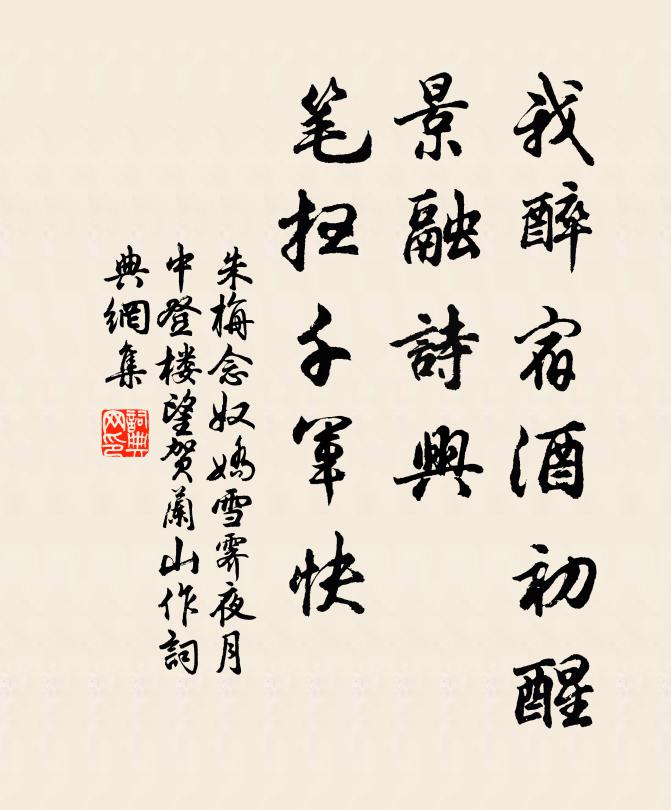 我醉宿酒初醒
景融詩興
笔扫千军快
朱梅念奴嬌雪霁夜月
中登楼望贺蘭山作詞
典網集
詞典网印